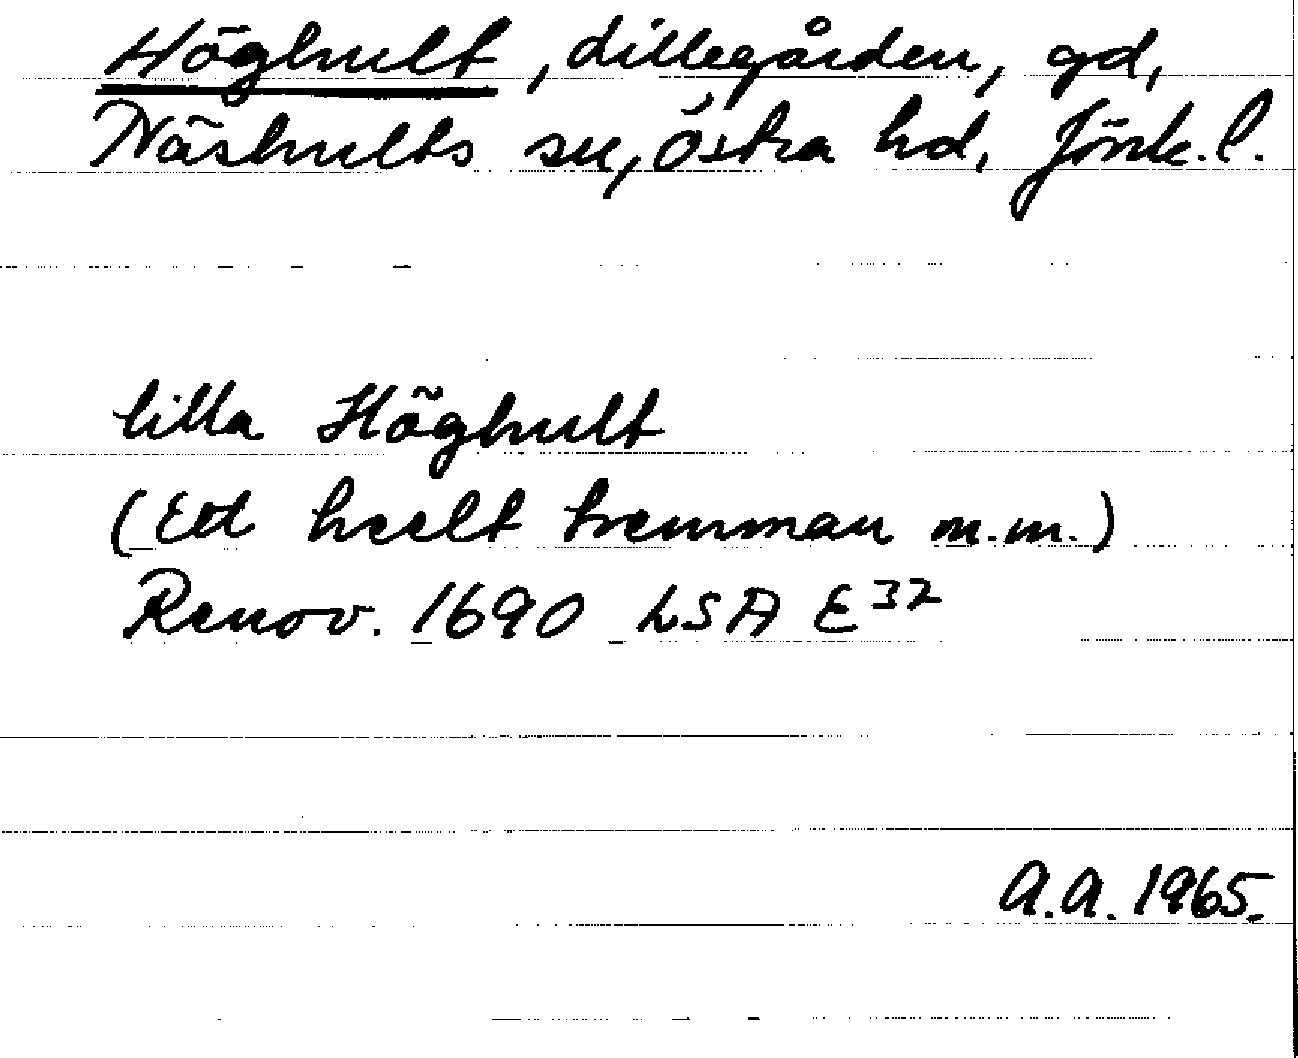 Höghult, dillegården, gd,
Näshults sn, Östra hd, Jönk.l.
lilla Höghult
(Ett heelt hemman m.m.)
Renov. 1690 LSA E 32
A.A. 1965.